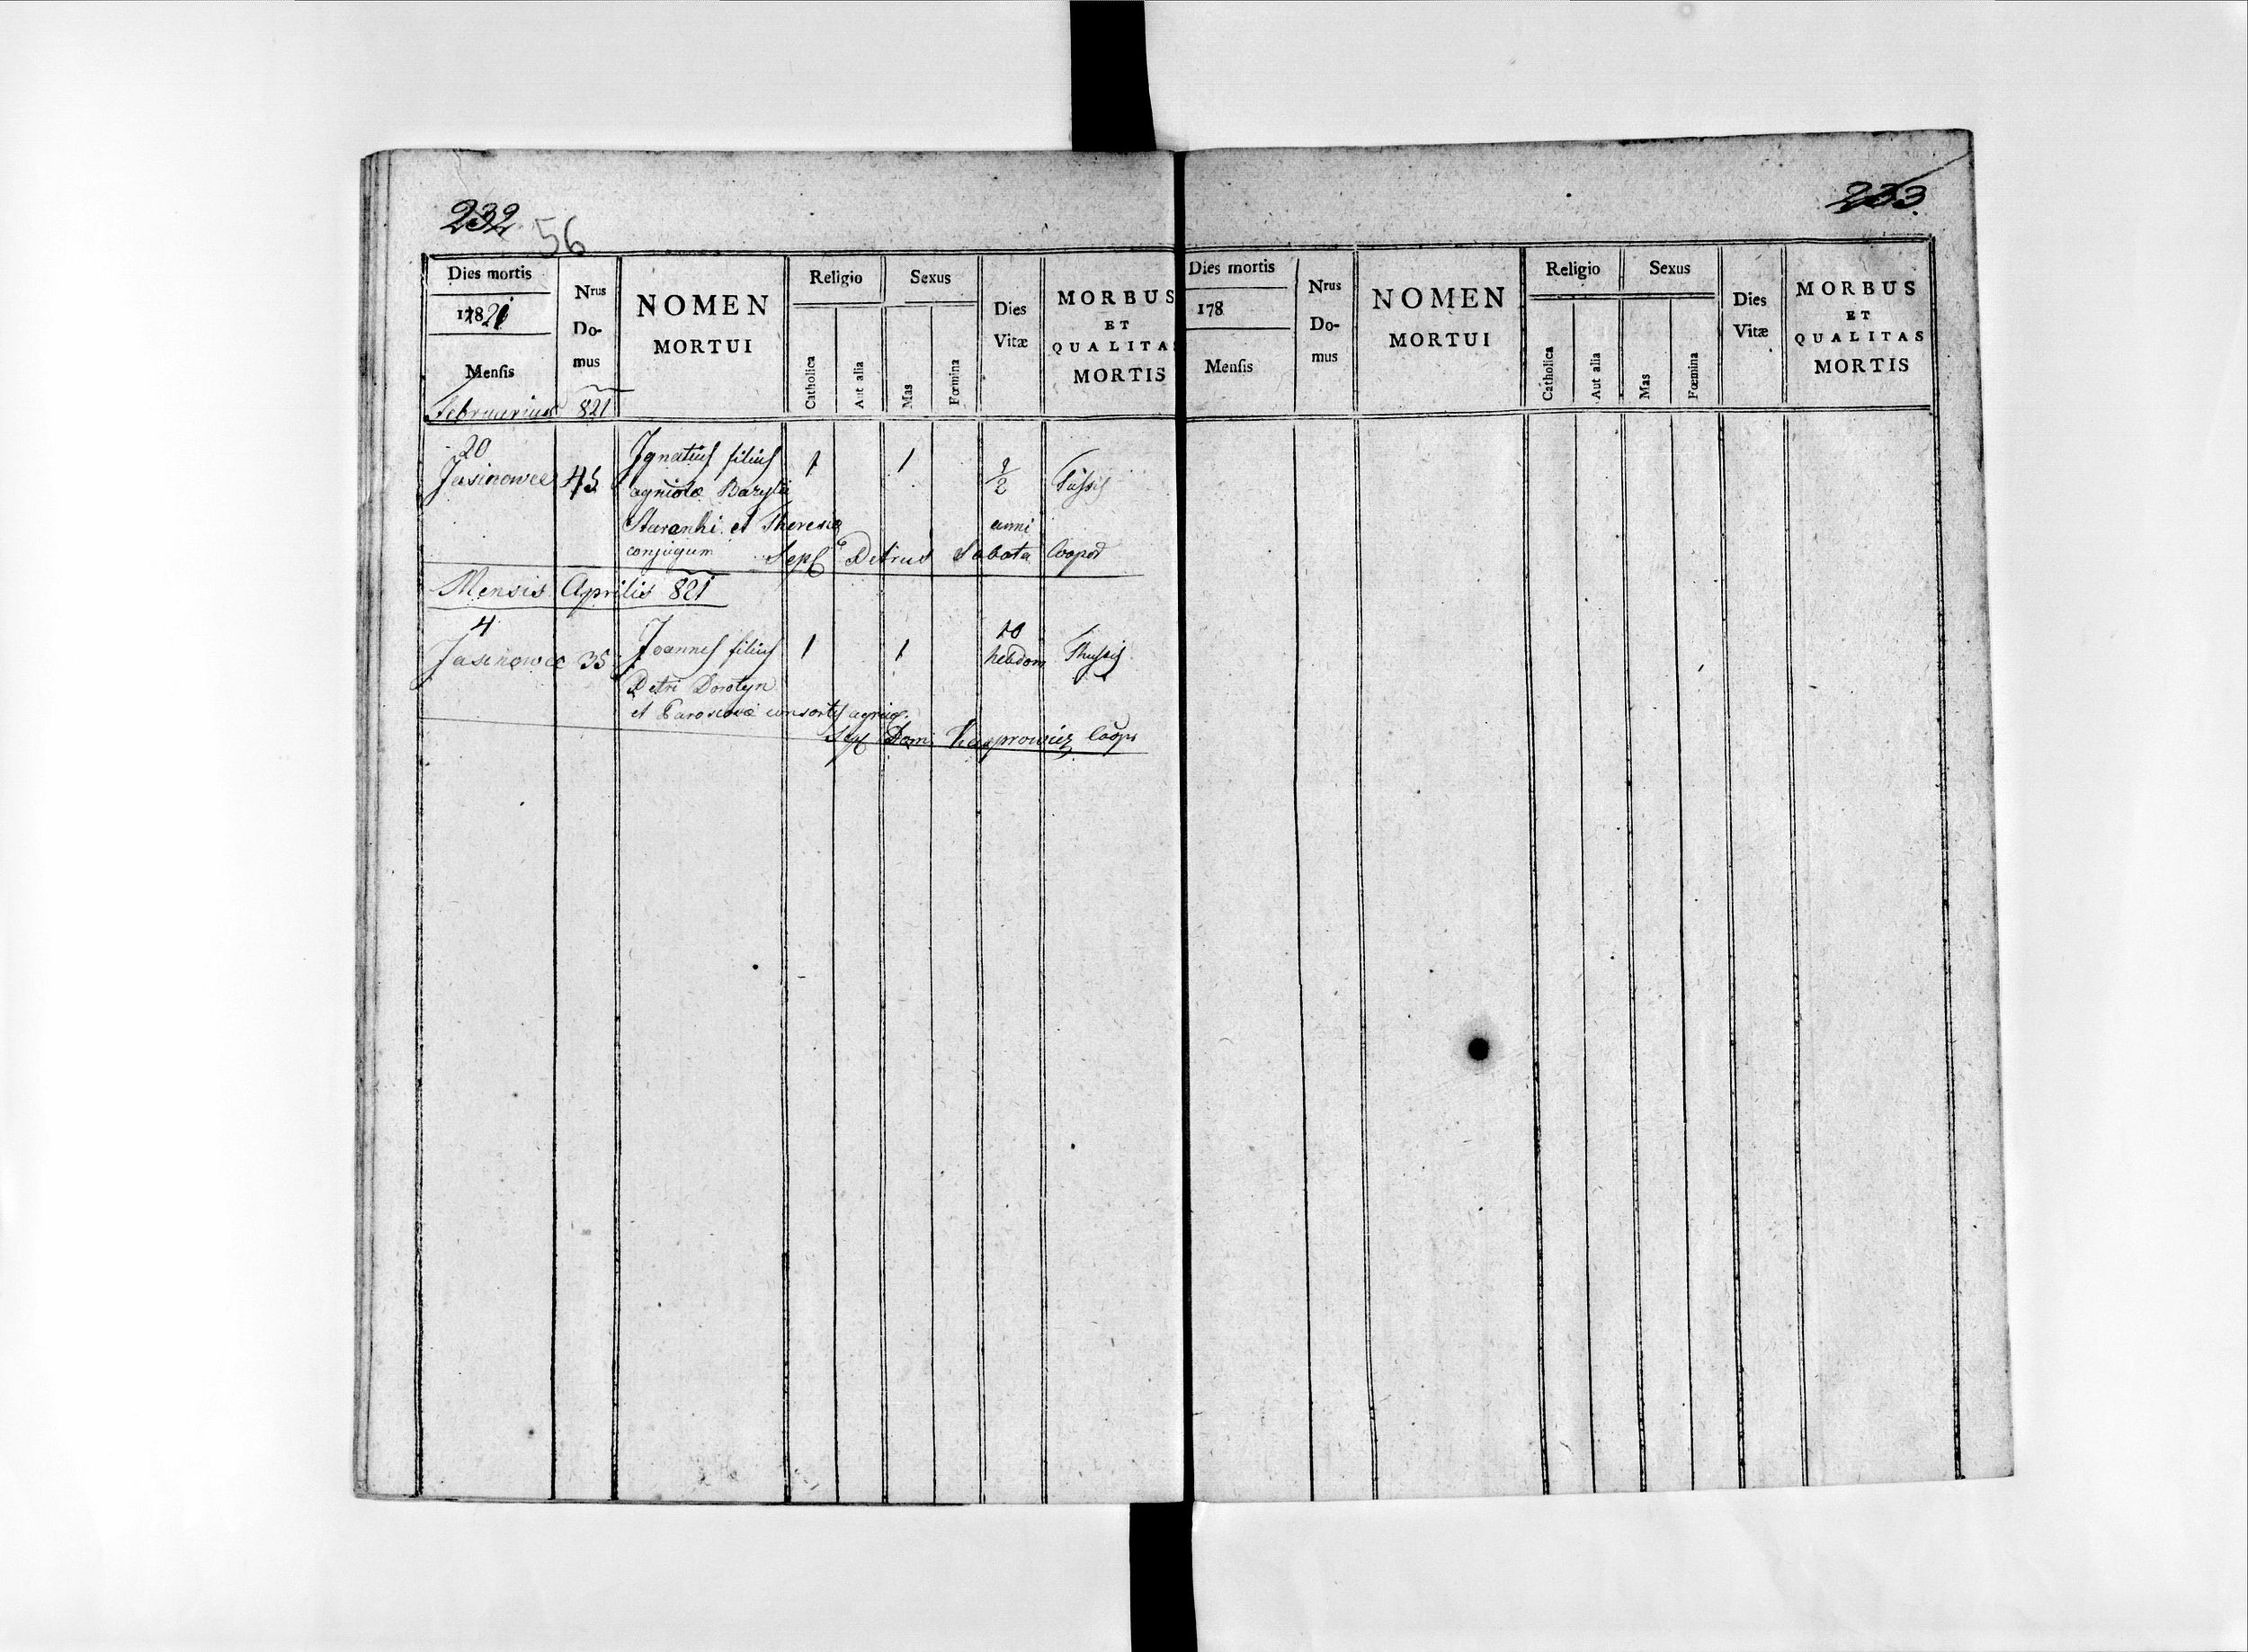 232
56
Dies mortis
1821
Mensis
Februarius 821
Nrus
Do-
mus
NOMEN
MORTUI
Religio
Catholica
Aut alia
Sexus
Mas
Fœmina
Dies
Vitæ
MORBUS
ET
QUALITA
MORTIS
20
Jasinowce 45 Ignatius filius 1 1 1/2 Tussis
agricolæ Bazylii
Staranki et Theresiæ anni
conjugum Sepl Petrus Sabata Cooper
Mensis Aprilis 821
4
Jasinowce 35 Joannes filius 1 1 10 hebdom Thussis
Petri Dorotyn
et Paroscovæ consortis agricol.
Sepl Dom Kasprowicz Coop
233
Dies mortis
178
Mensis
Nrus
Do-
mus
NOMEN
MORTUI
Religio
Catholica
Aut alia
Sexus
Mas
Fœmina
Dies
Vitæ
MORBUS
ET
QUALITAS
MORTIS